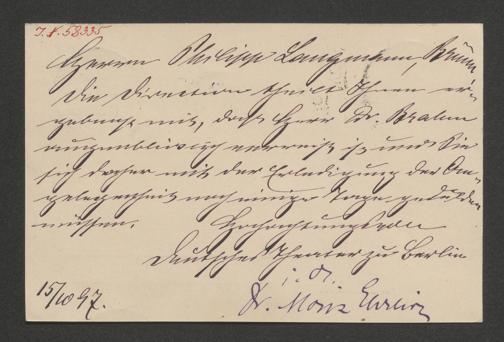 I.N. 58335
Herrn Philipp Langmann, Brünn
Die Direction theilt Ihnen er-
gebenst mit, dass Herr Dr. Brahm
augenblicklich verreist ist und Sie
sich daher mit der Erledigung der An-
gelegenheit noch einige Tage gedulden
müssen.
Hochachtungsvoll
Deutsches Theater zu Berlin
i. A.
Dr. Moriz Ehrlich
15/10 97.